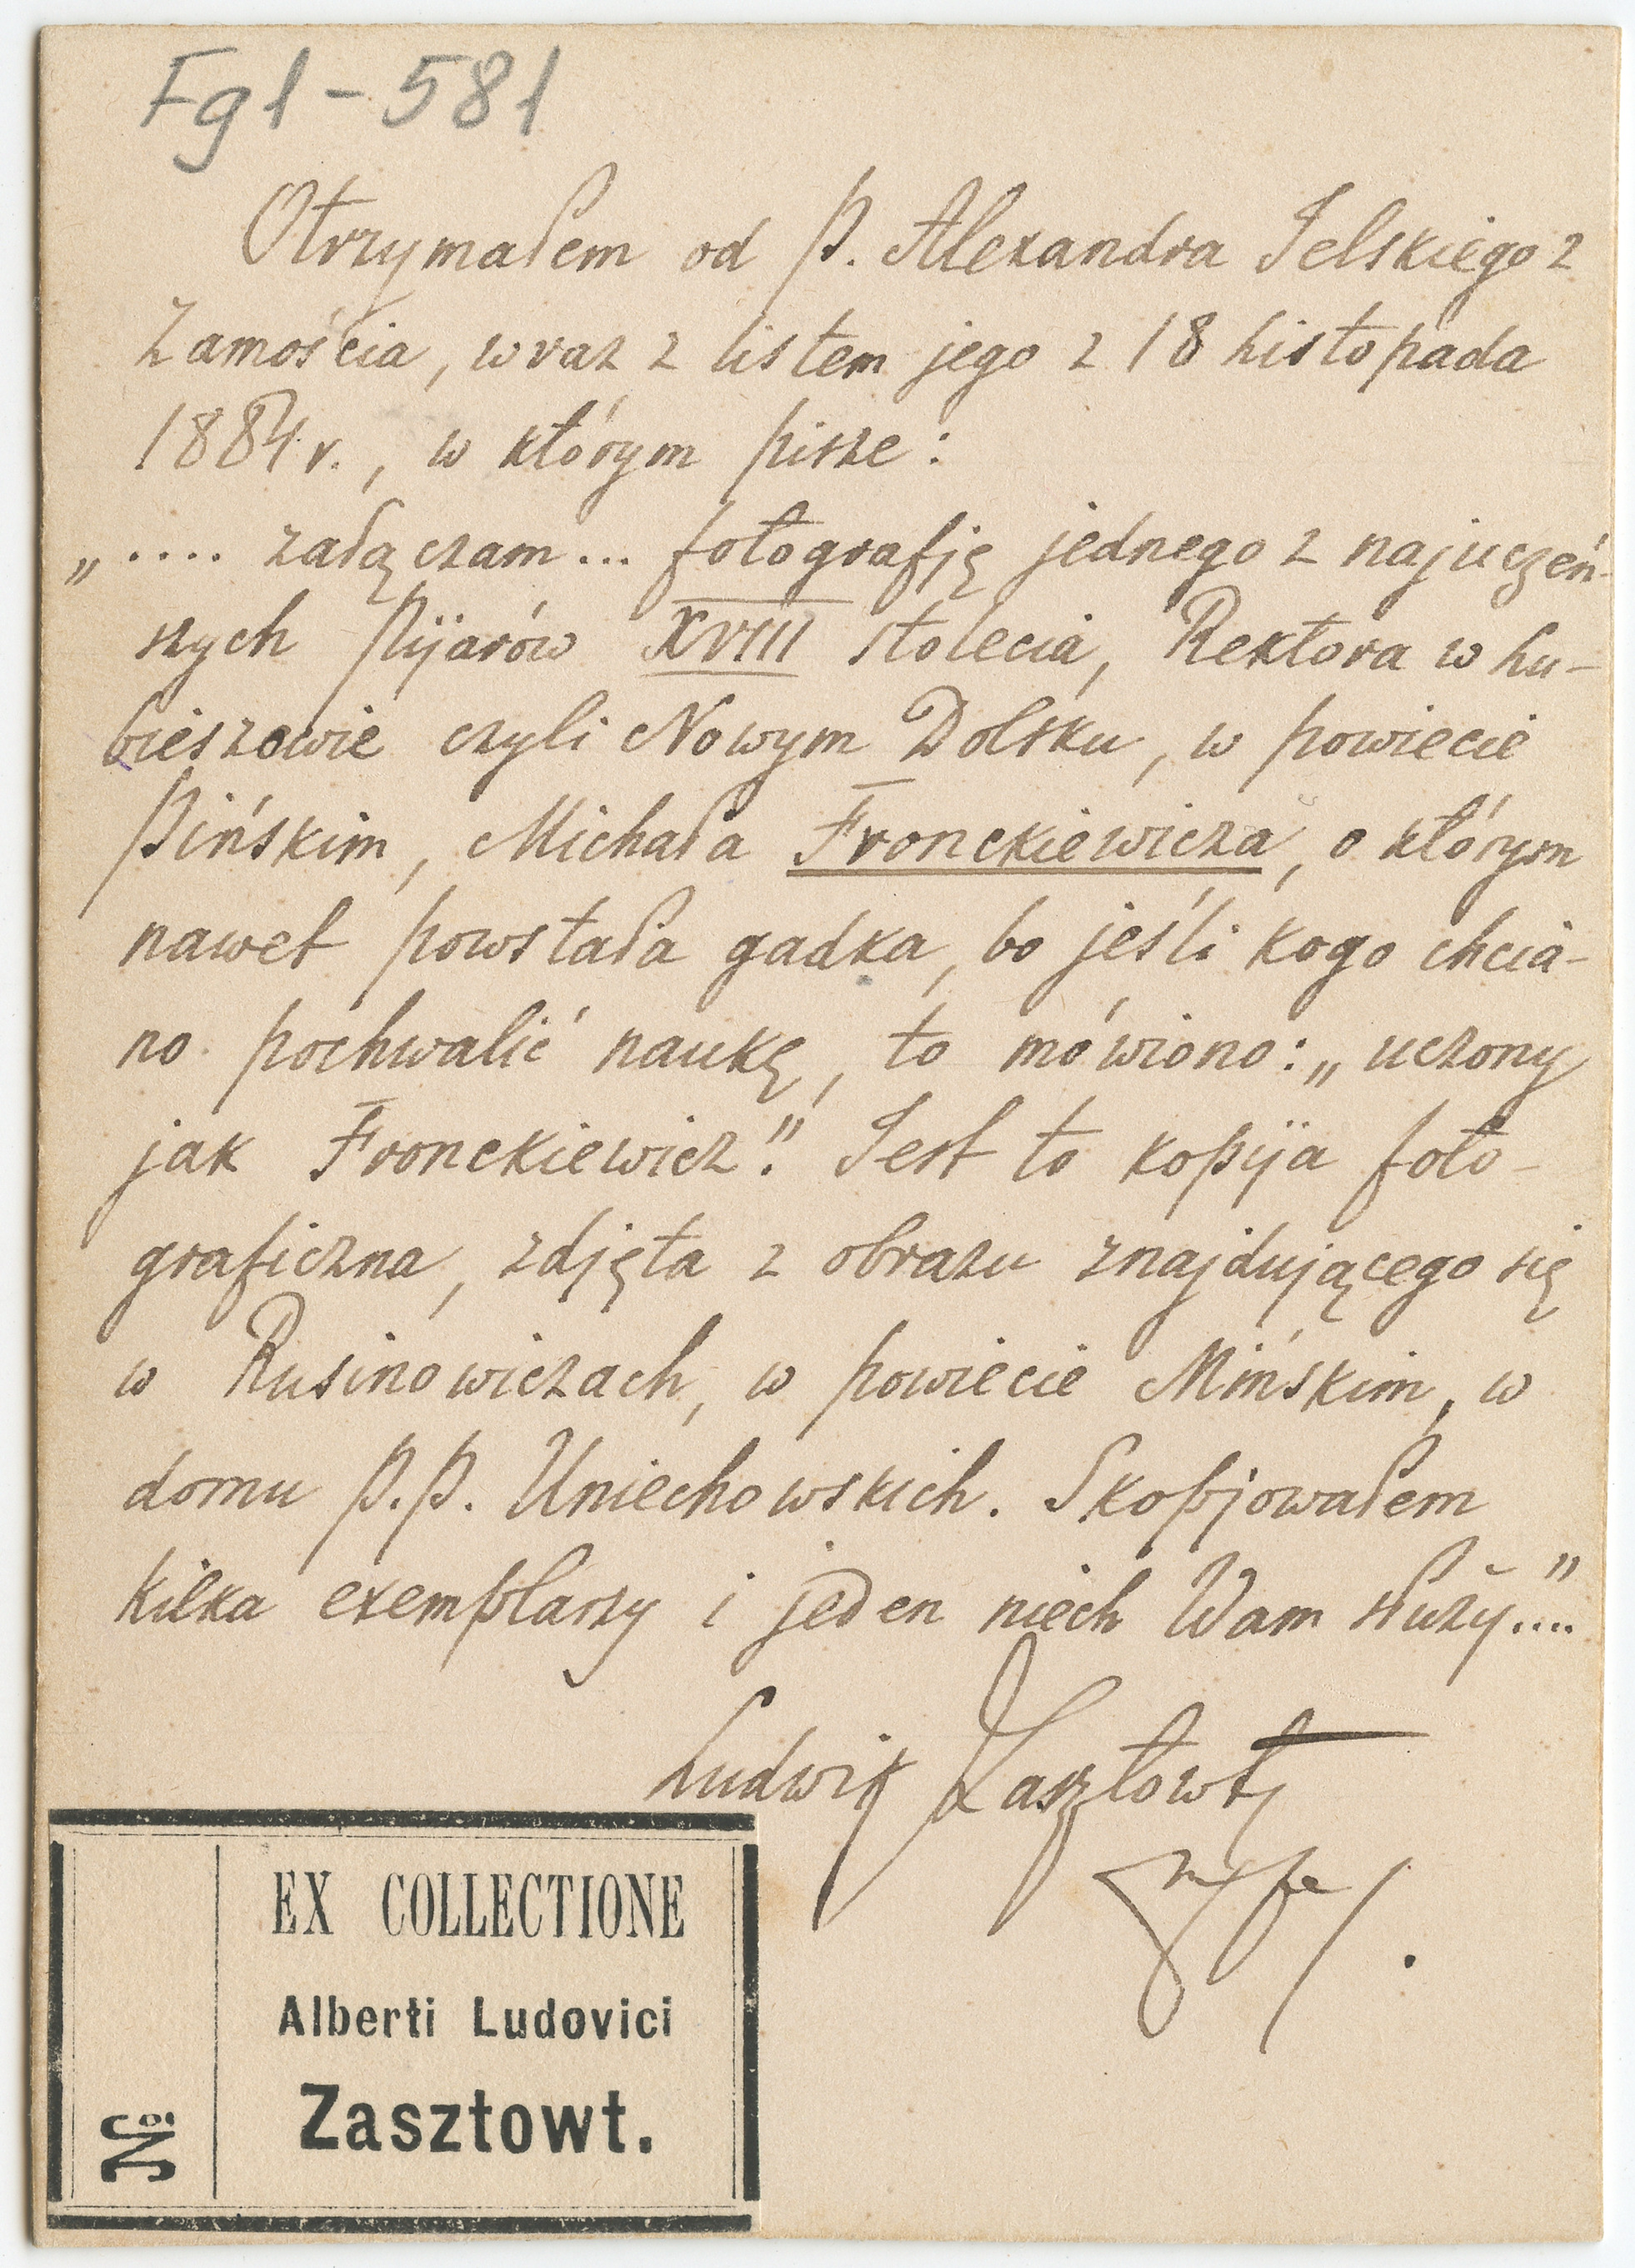 Fgl-581
Otrzymałem od P. Alexandra Jelskiego z
Zamościa, wraz z listem jego z 18 Listopada
1884 r., w którym pisze:
„.... załączam... fotografję jednego z najuczeń-
szych Pijarów XVIII stolecia, Rektora w Lu-
bieszowie czyli Nowym Dolsku, w powiecie
Pińskim, Michała Fronckiewicza, o którym
nawet powstała gadka, bo jeśli kogo chcia-
no pochwalić naukę, to mówiono: „uczony
jak Fronckiewicz." Jest to kopija foto-
graficzna, zdjęta z obrazu znajdującego się
w Rusinowiczach, w powiecie Mińskim, w
domu P.P. Uniechowskich. Skopjowałem
kilka exemplarzy i jeden niech Wam służy...."
Ludwik Zasztowt
EX COLLECTIONE
Alberti Ludovici
Zasztowt.
№